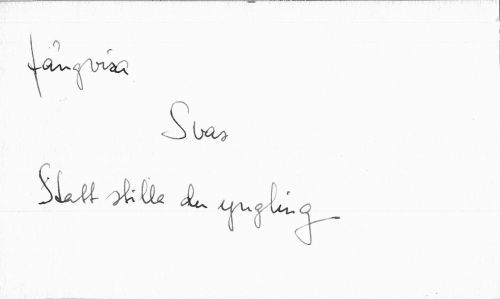 fångvisa
Svar
Statt stilla du yngling